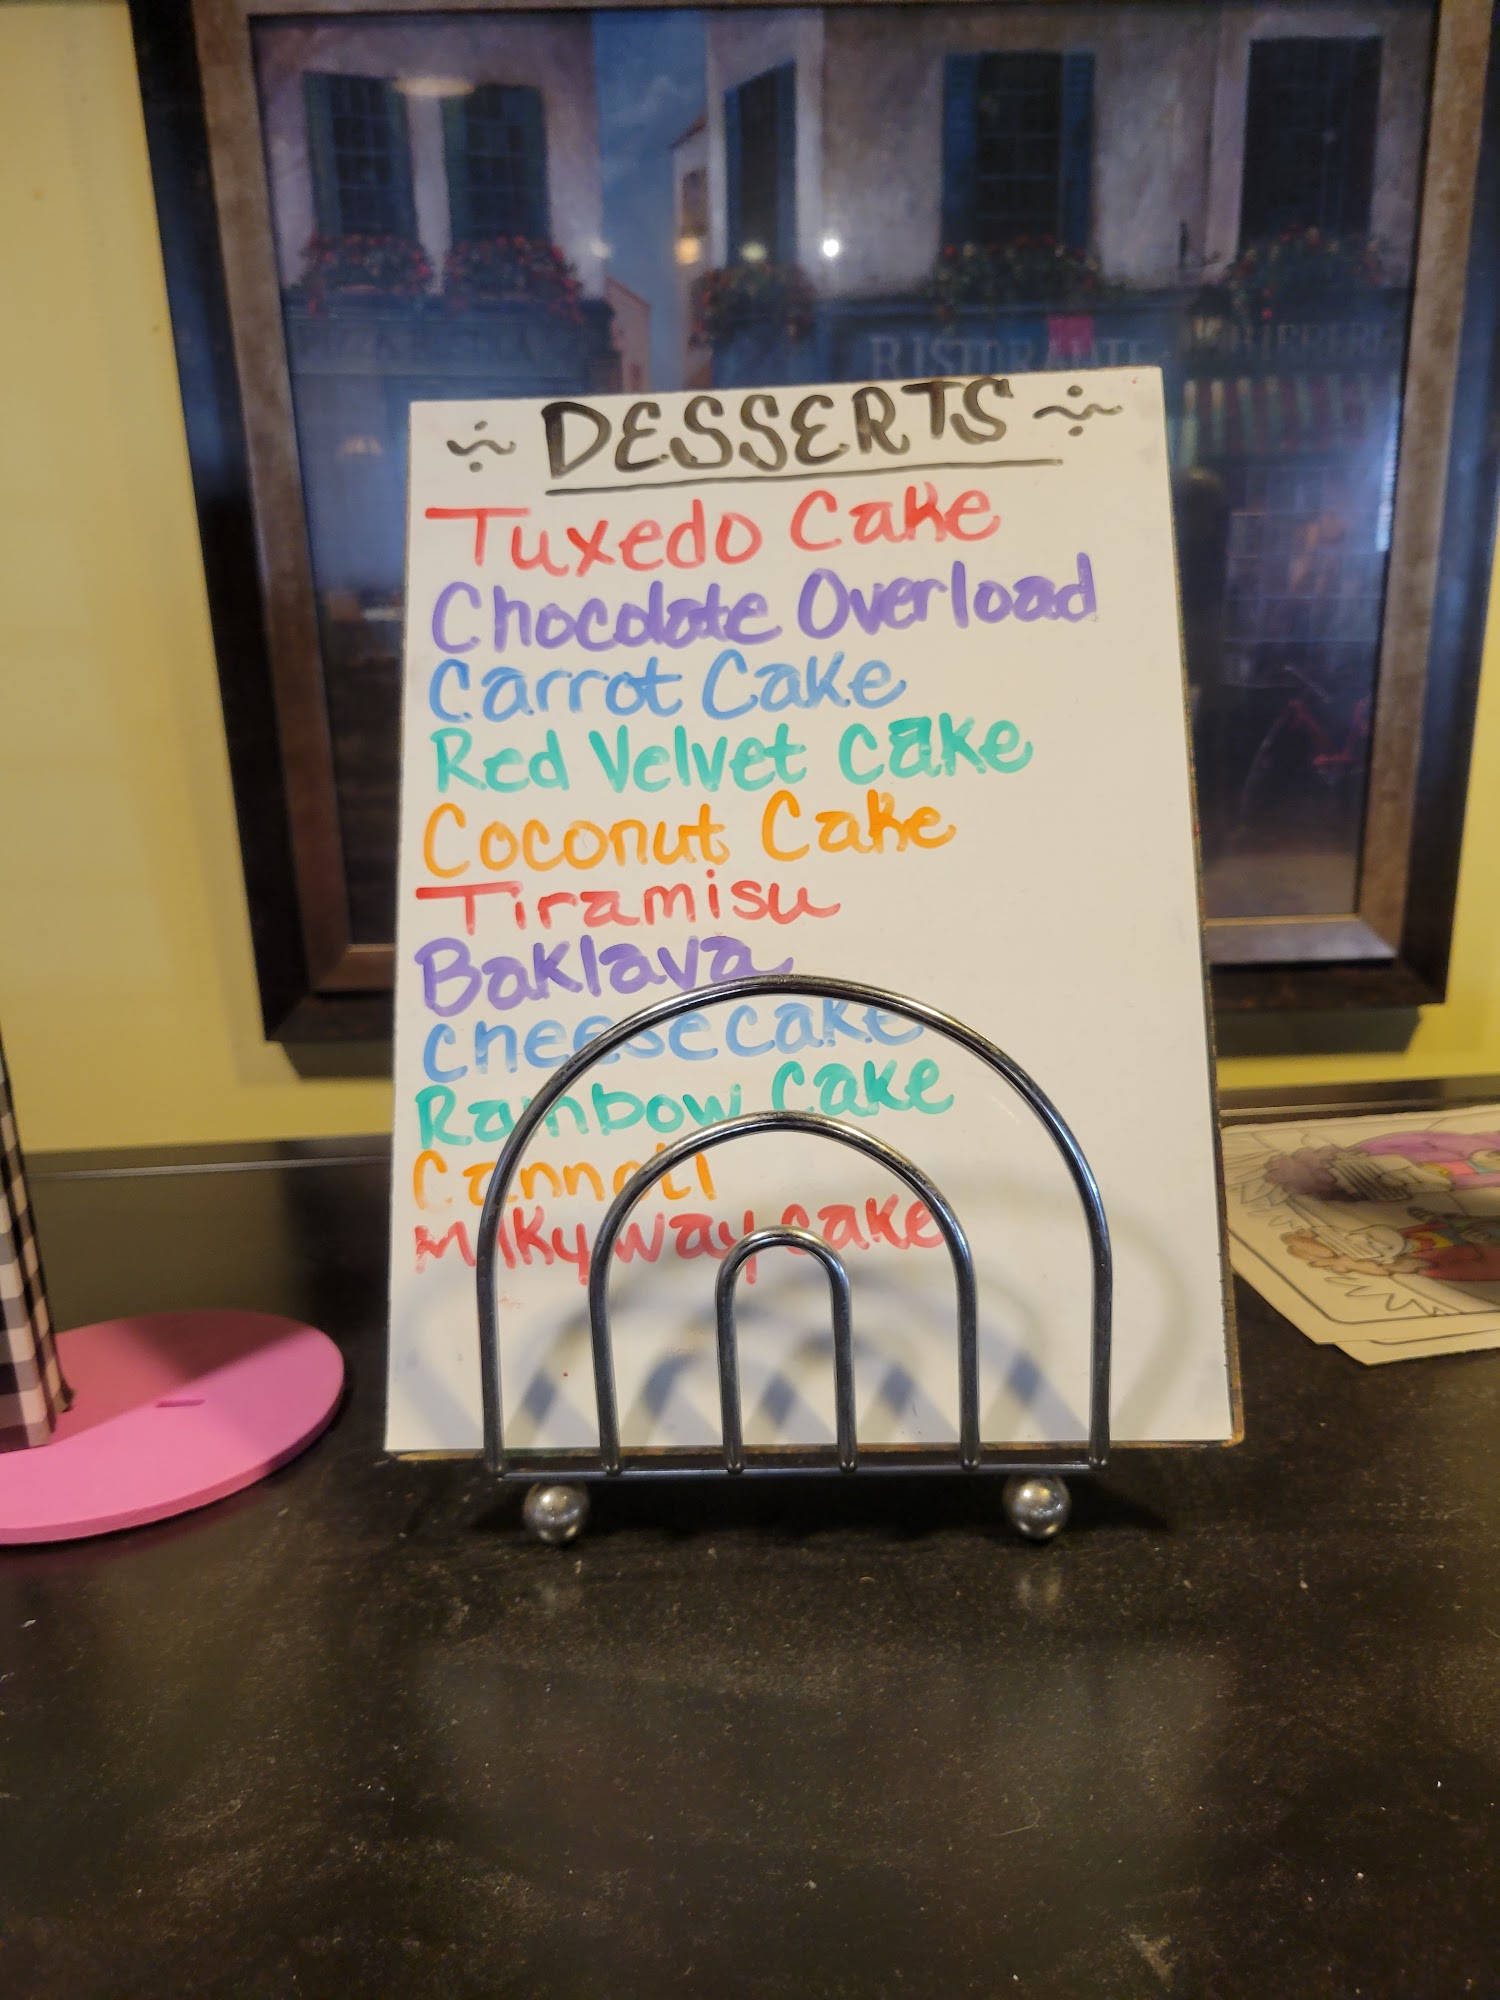 RISTORANTE
DESSERTS
Tuxedo Cake
Chocolate Overload
Carrot Cake
Red Velvet Cake
Coconut Cake
Tiramisu
Baklava
Cheesecake
Rainbow Cake
Cannoli
Milky Way Cake